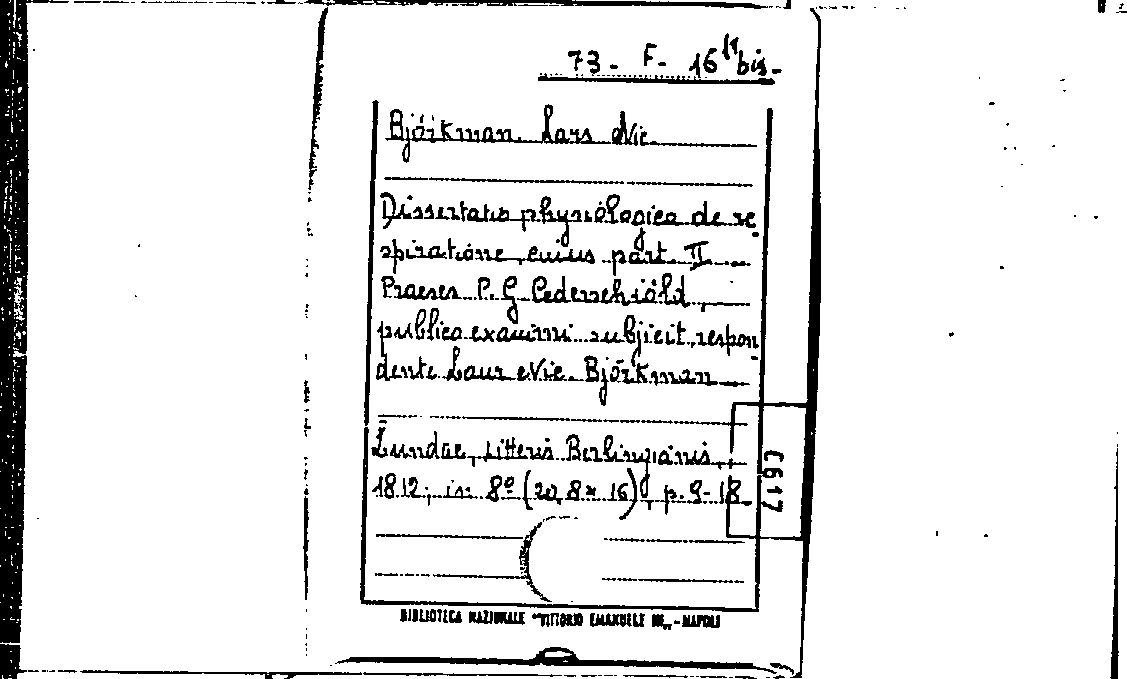 73 - F - 16 bis -
Björkman Lars Nic.
Dissertatio physiologica de re
spiratione, cuius part. II
Praeses P. G. Cederschiöld,
publico examini subjicit, respon
dente Laur. Nic. Björkman
Lundae, Litteris Berlingianis,
1812; in 8º (20,8 x 16), p. 9-18
C617
BIBLIOTECA NAZIONALE "VITTORIO EMANUELE III„ - NAPOLI